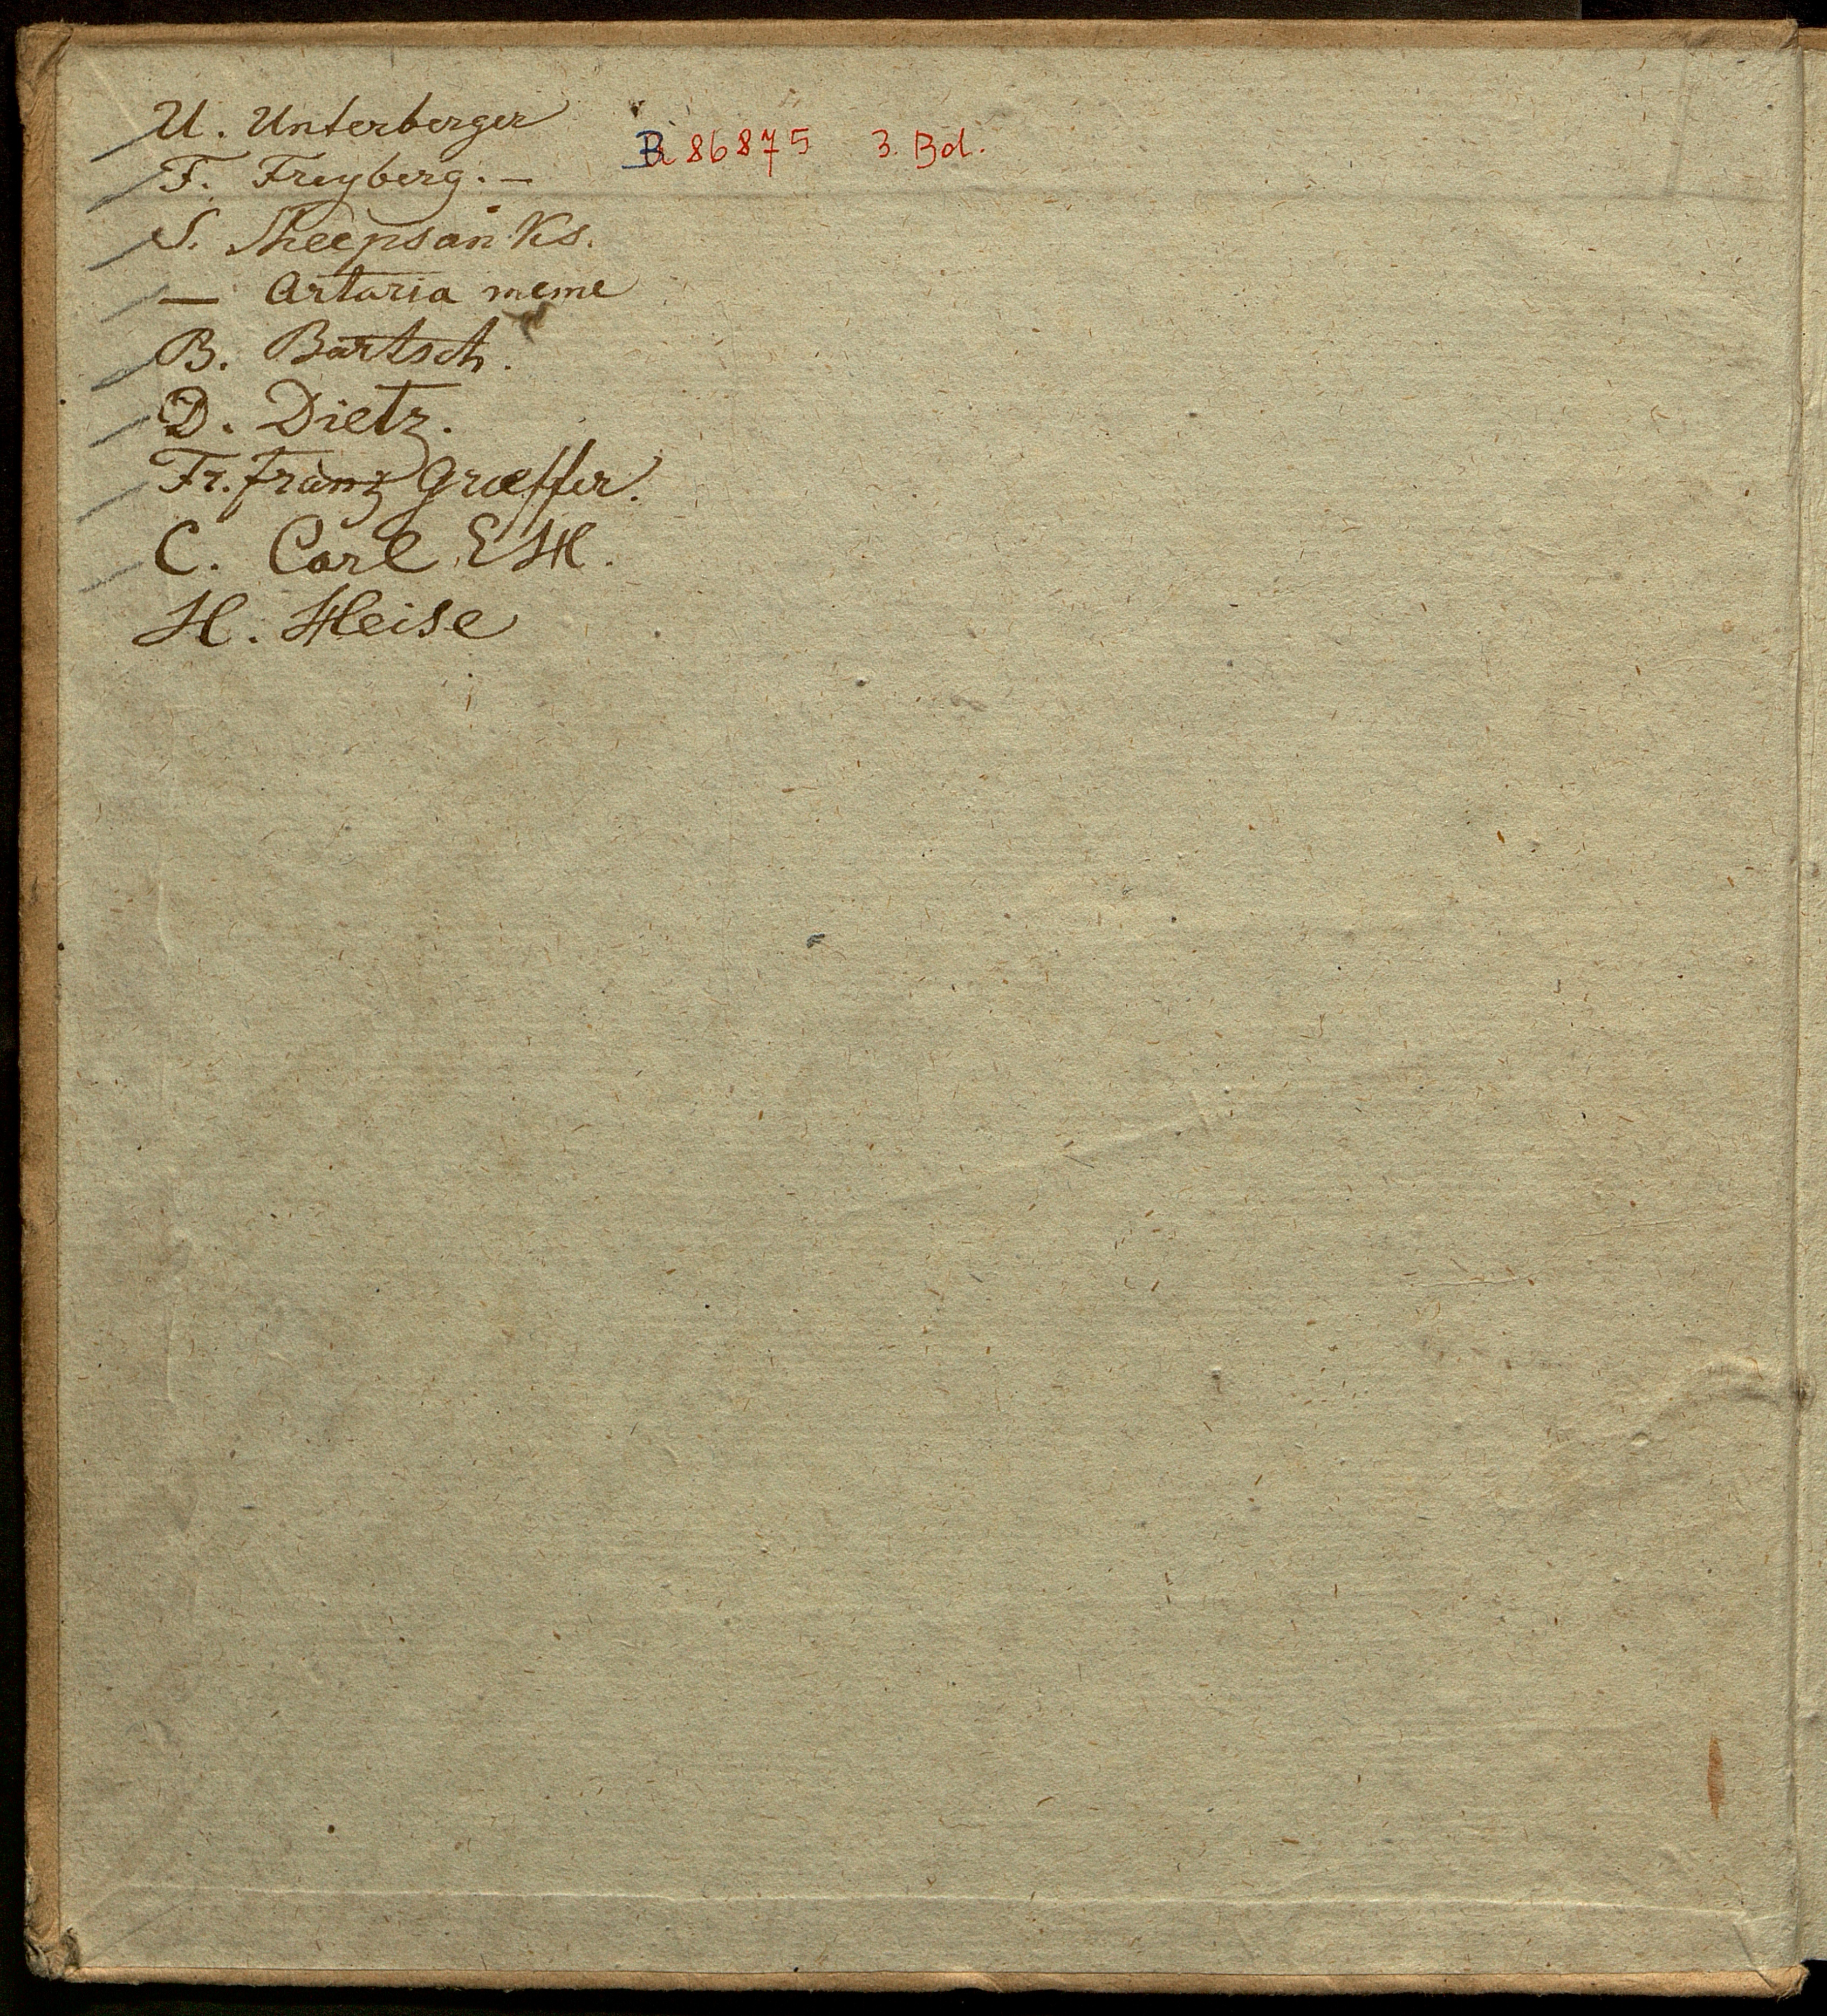 U. Unterberger
B 86875 3. Bd.
F. Freyberg. —
S. Sheepsanks.
— Artaria meme
B. Bartsch.
D. Dietz.
Fr. Franz Græffer.
C. Carl EH.
H. Heise